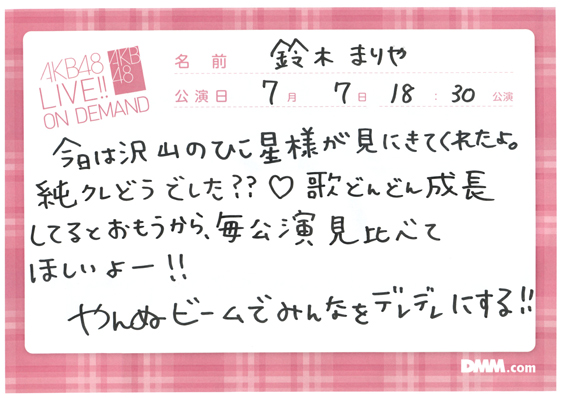 AKB48
LIVE!!
ON DEMAND
AKB
48
名前 鈴木まりや
公演日 7月 7日 18:30 公演
今日は沢山のひこ星様が見にきてくれたよ。
純クレどうでした??♡歌どんどん成長
してるとおもうから、毎公演見比べて
ほしいよー!!
やんぬビームでみんなをデレデレにする!!
DMM.com